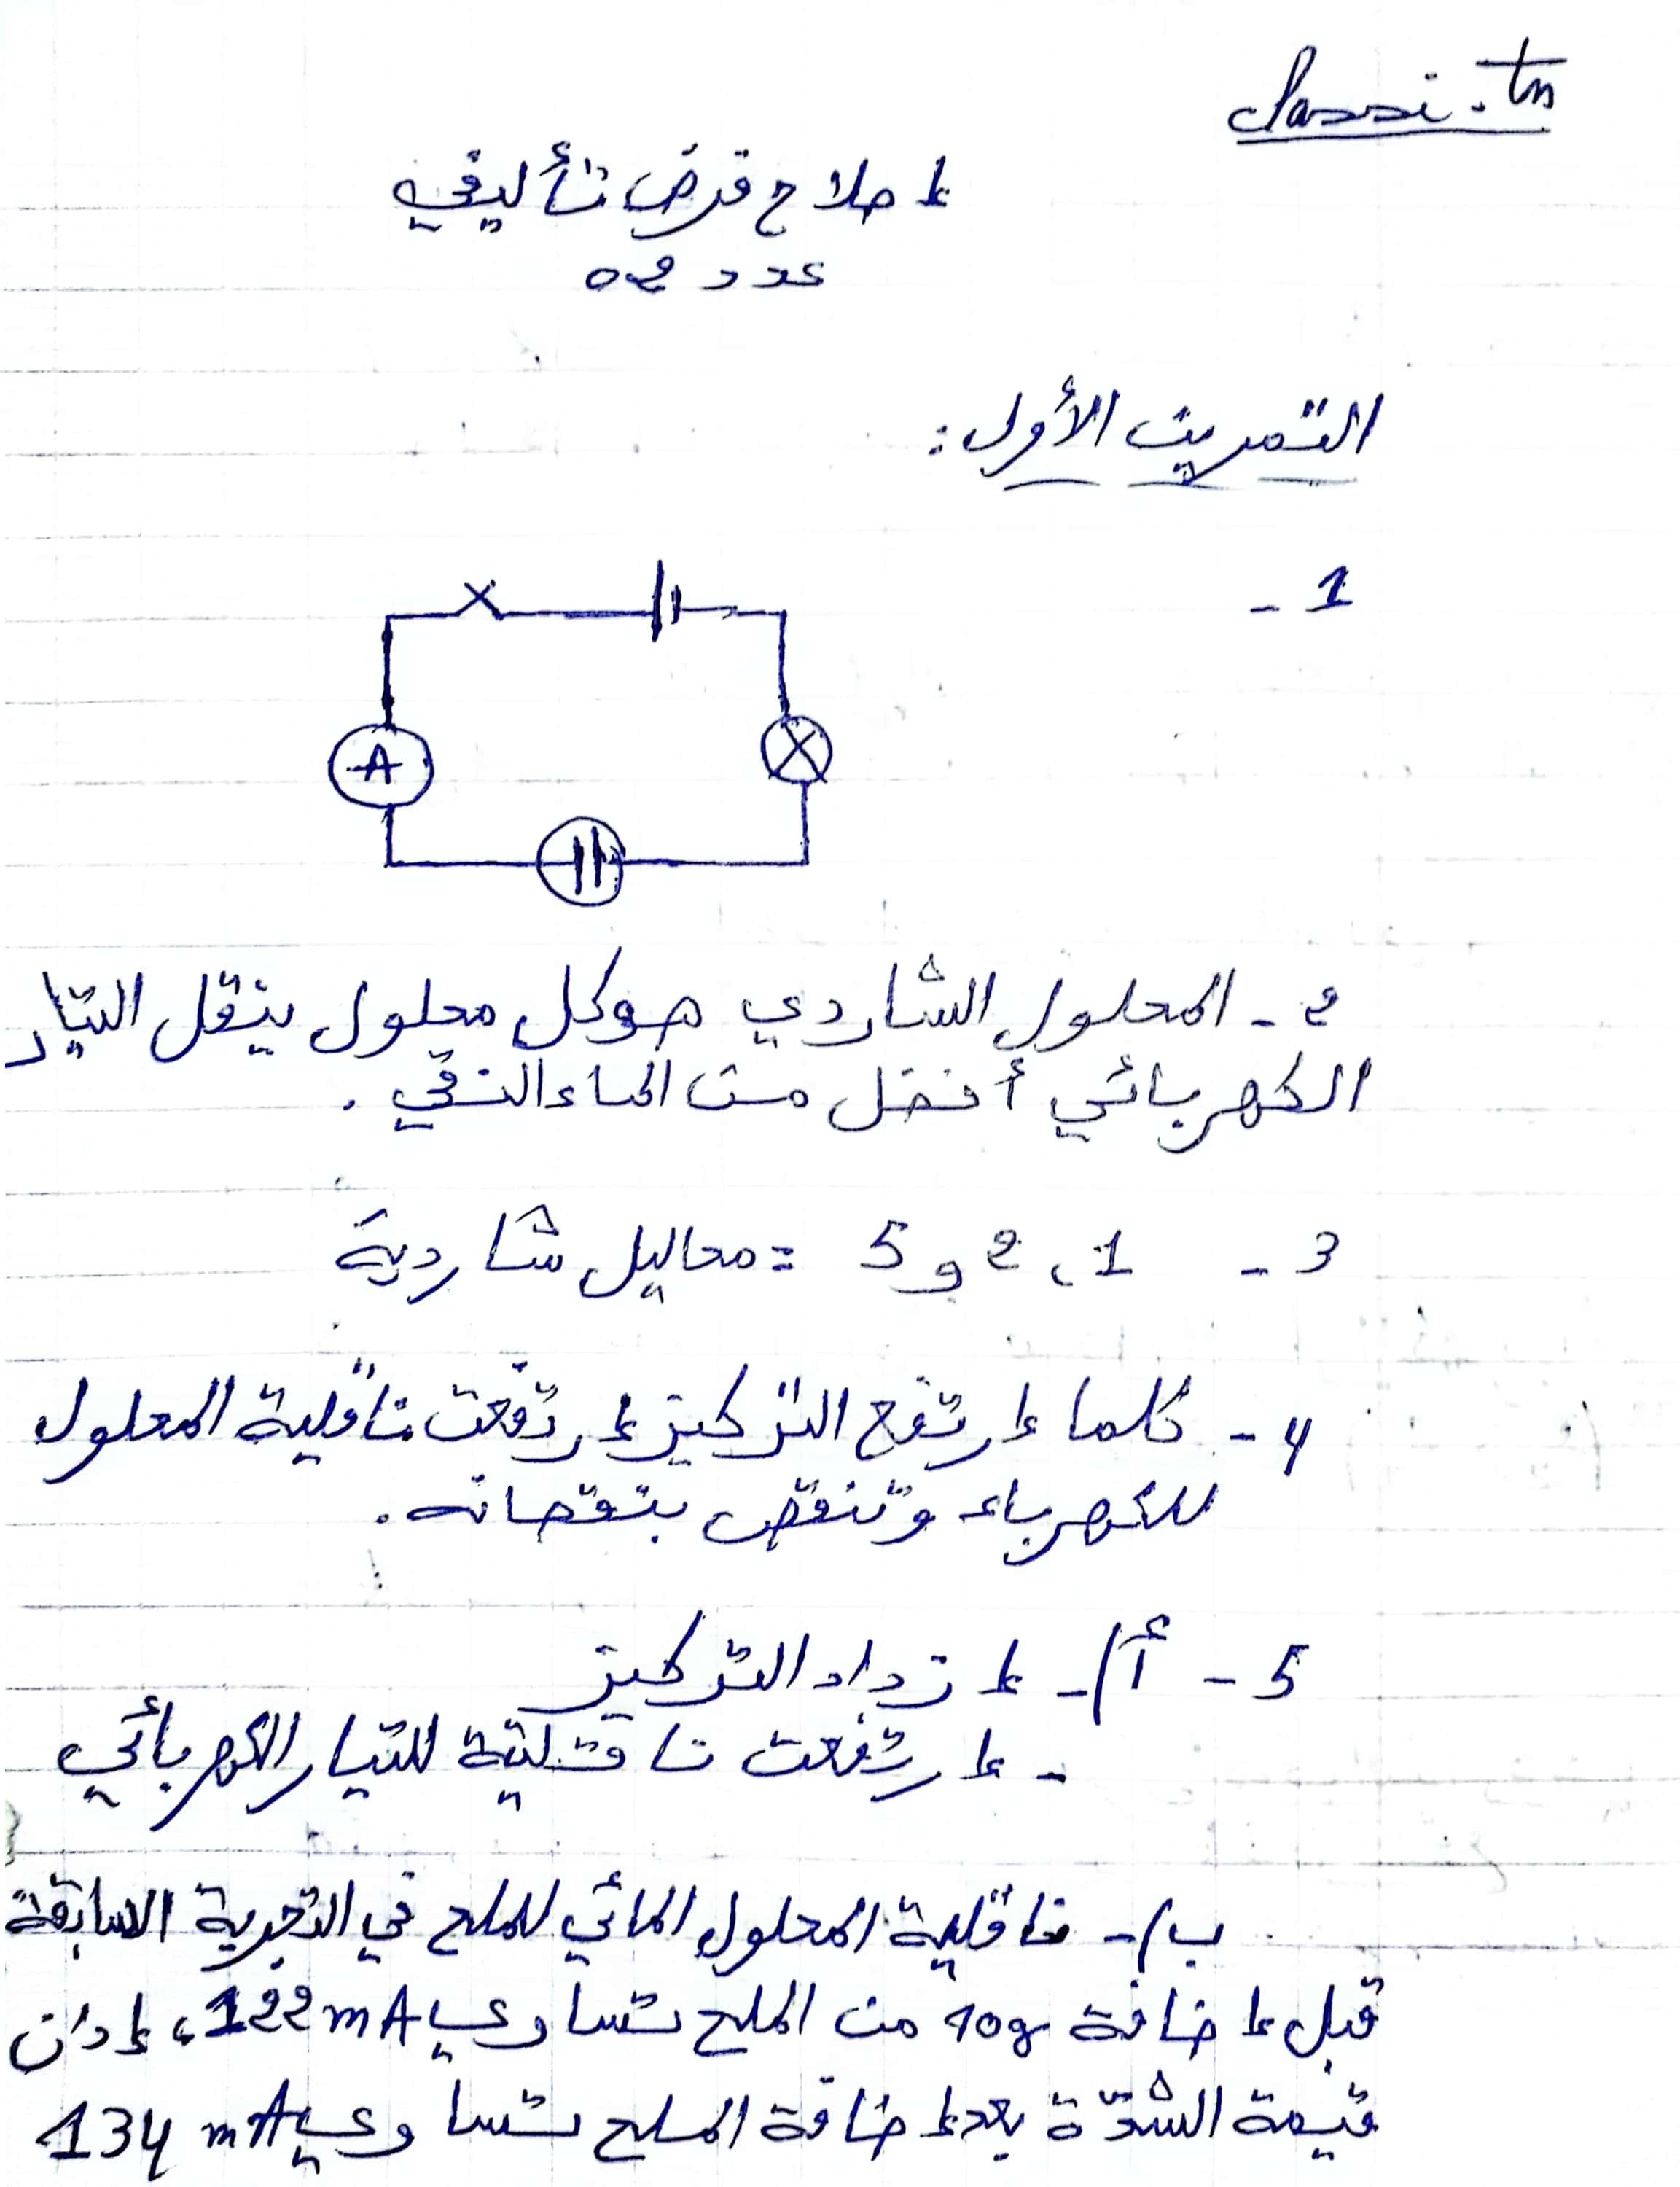 classi.tn
إصلاح فرض تأليفي
عدد 02
التمرين الأول:
1 -
A
2 - المحلول الشاردي هو كل محلول ينقل التيار
الكهربائي أفضل من الماء النقي .
3 - 1، 2 و 5 = محاليل شاردية
4 - كلما إرتفع التركيز إرتفعت ناقلية المحلول
للكهرباء وتنقص بنقصانه .
5 - أ/- إزداد التركيز
- إرتفعت ناقليته للتيار الكهربائي
ب/- ناقلية المحلول المائي للملح في التجربة السابقة
قبل إضافة 10g من الملح تساوي 122mA، إذن
قيمة الشدّة بعد إضافة الملح تساوي 134 mA